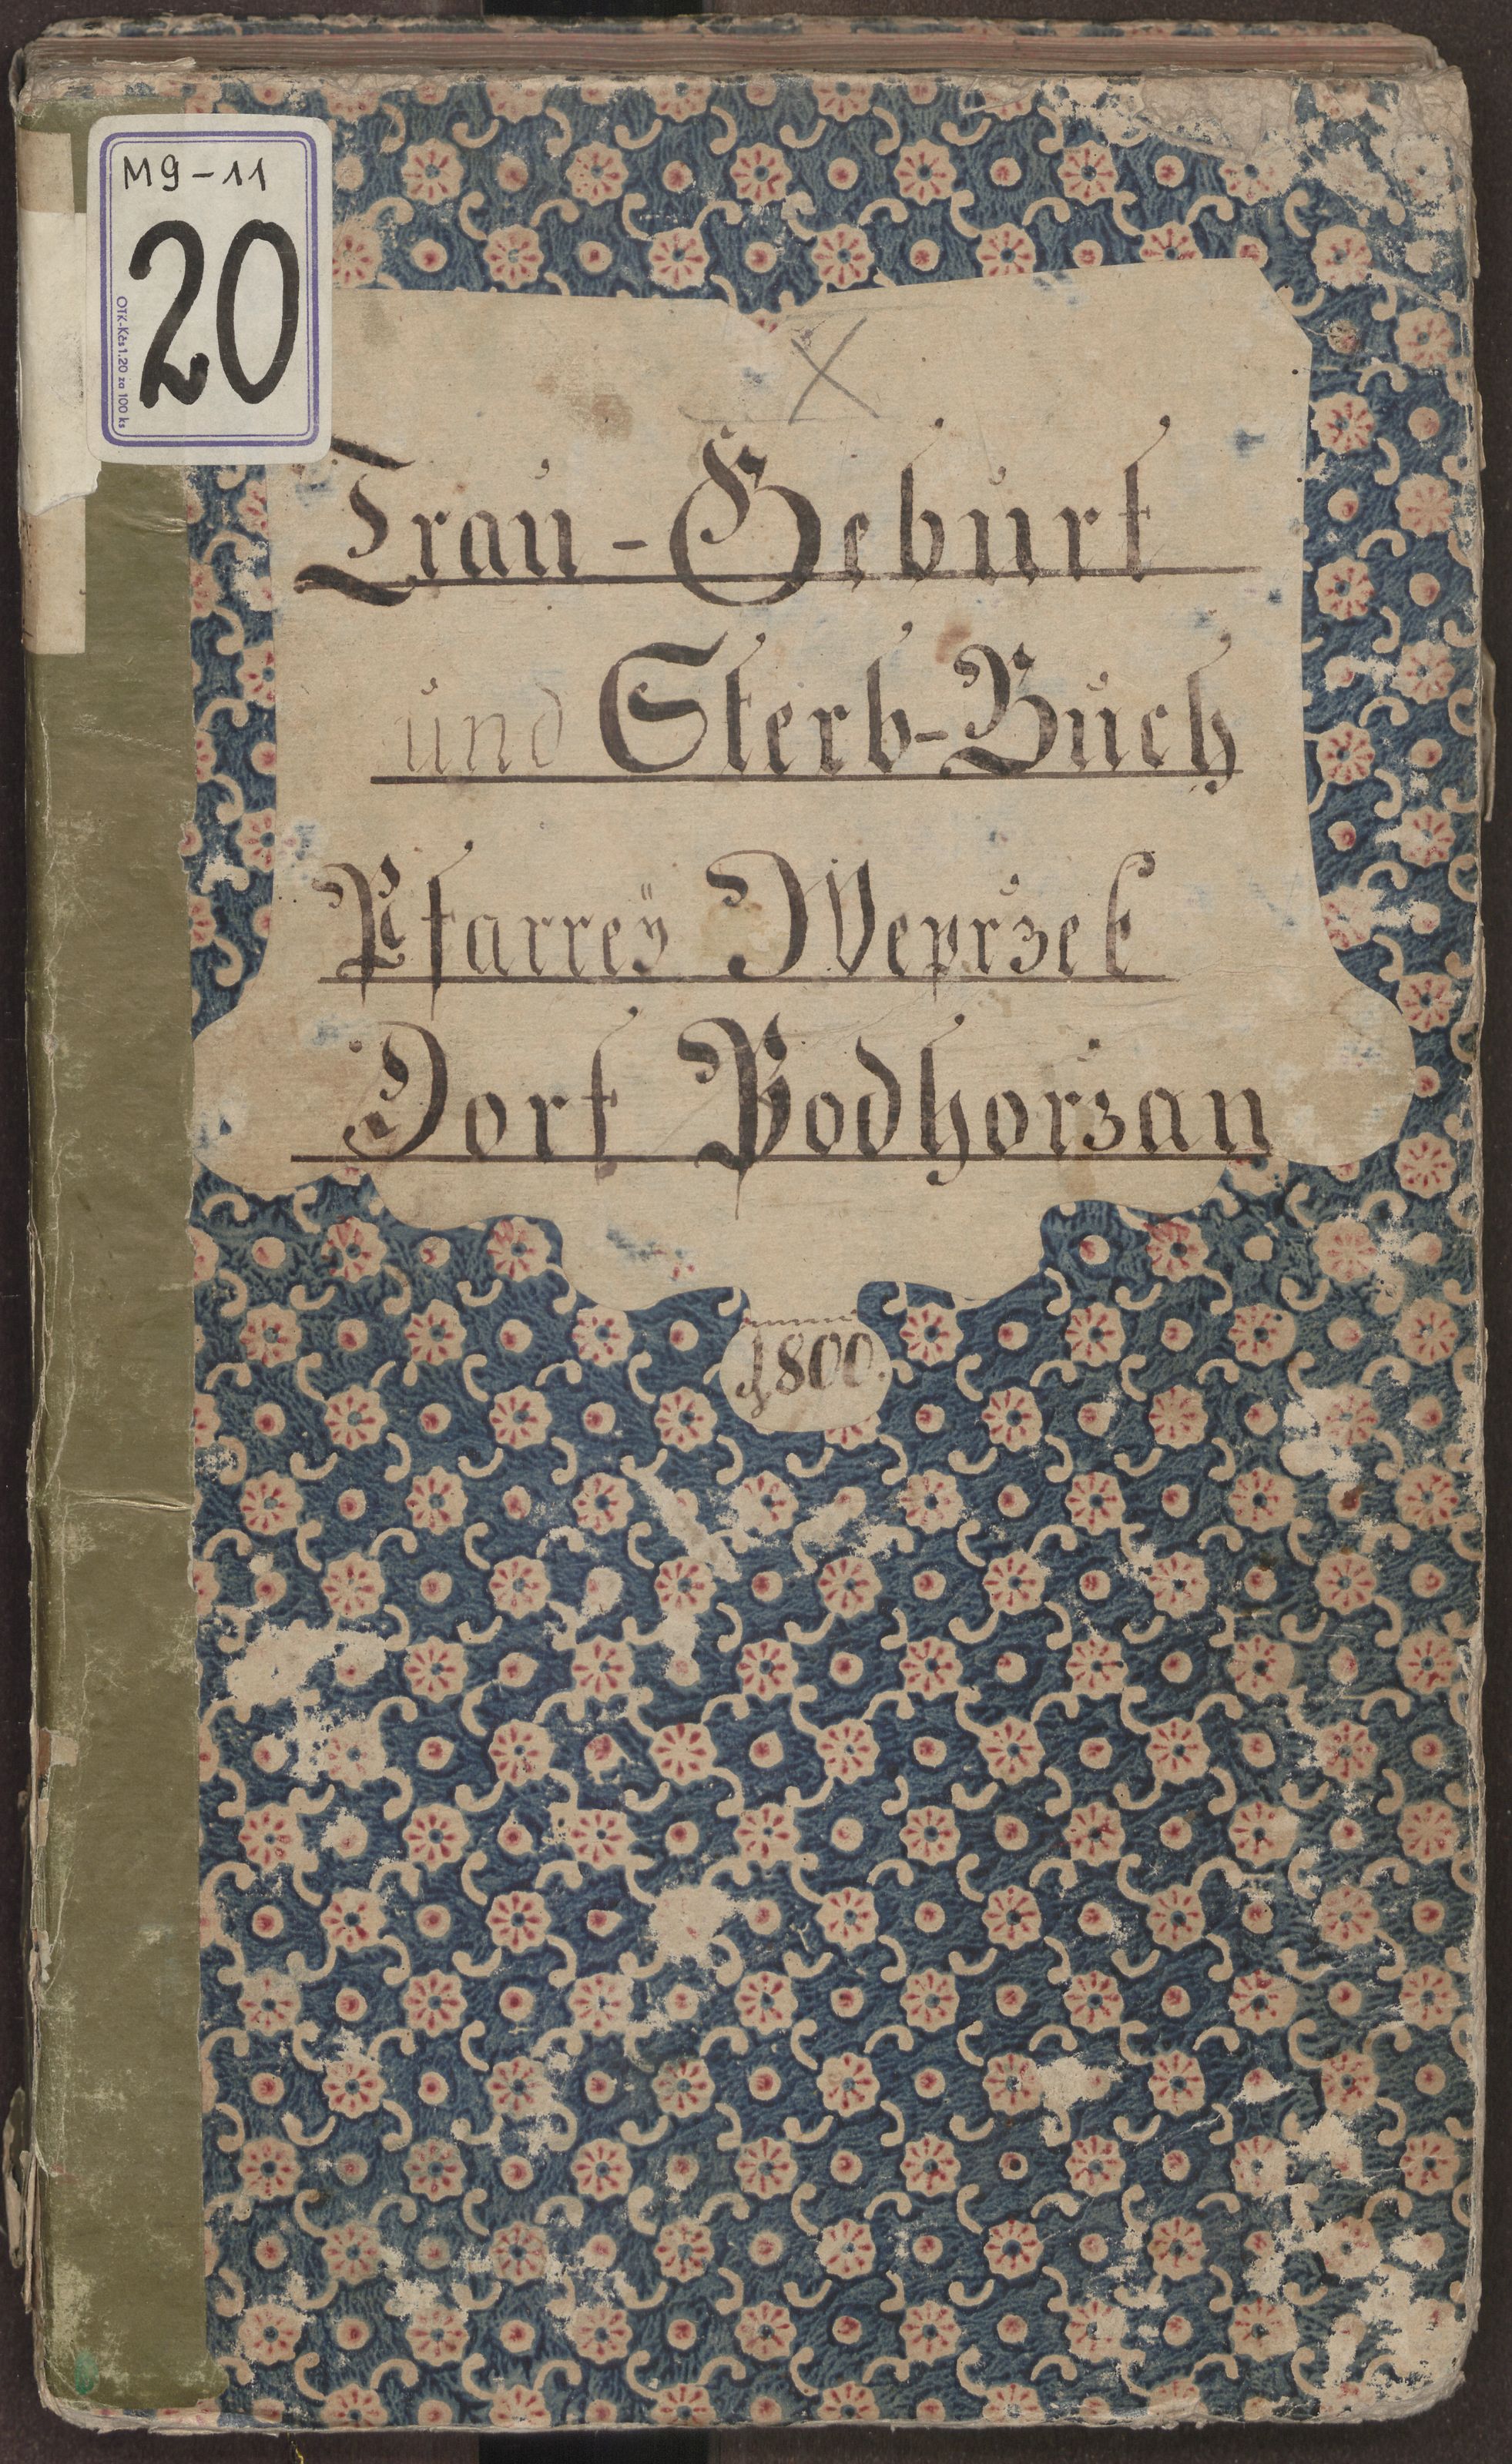 M9-11
20
OTK-Kčs 1.20 za 100 ks
X
Trau-Geburt
und Sterb-Buch
Pfarreÿ Weprzek
Dorf Podhorzan
1800.